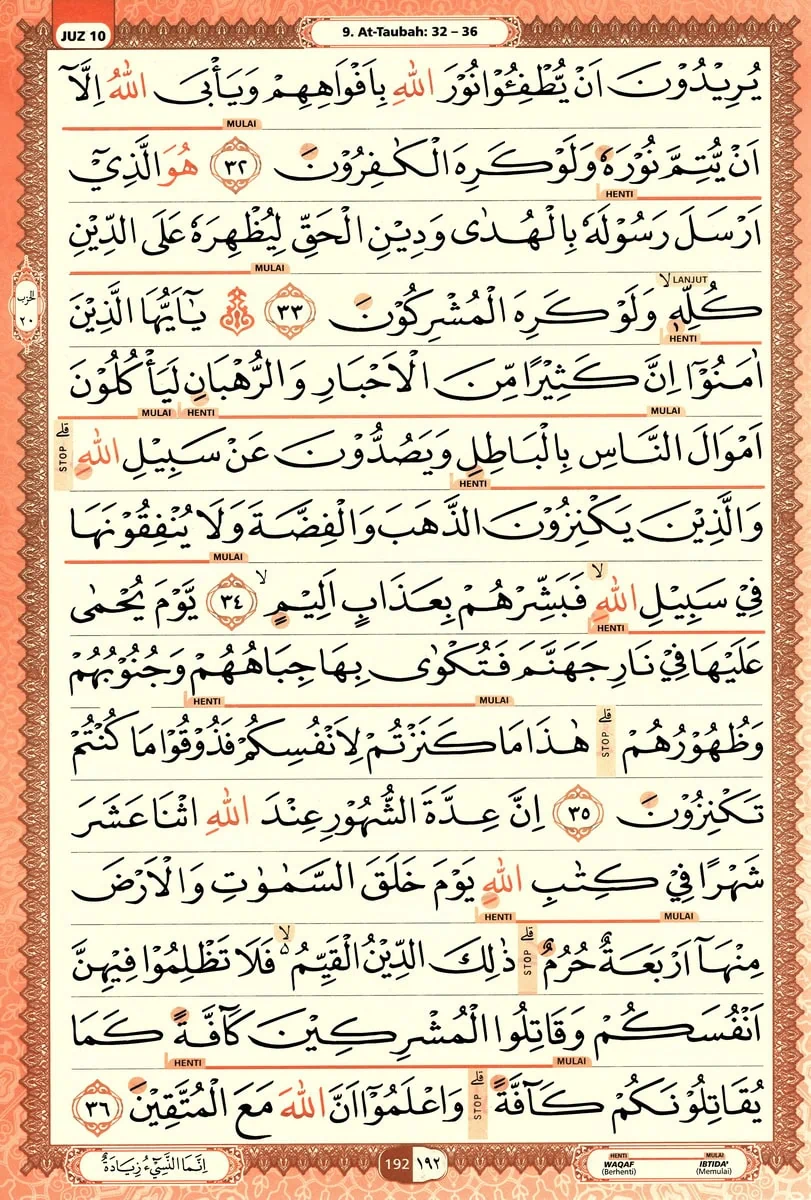 JUZ 10
9. At-Taubah: 32 – 36
يُرِيْدُوْنَ اَنْ يُّطْفِـُٔوْا نُوْرَ اللّٰهِ بِاَفْوَاهِهِمْ وَيَأْبَى اللّٰهُ اِلَّآ
MULAI
اَنْ يُّتِمَّ نُوْرَهٗ وَلَوْ كَرِهَ الْكٰفِرُوْنَ ٣٢ هُوَ الَّذِيْٓ
HENTI
اَرْسَلَ رَسُوْلَهٗ بِالْهُدٰى وَدِيْنِ الْحَقِّ لِيُظْهِرَهٗ عَلَى الدِّيْنِ
MULAI
لا LANJUT
كُلِّهٖ وَلَوْ كَرِهَ الْمُشْرِكُوْنَ ٣٣ يٰٓاَيُّهَا الَّذِيْنَ
HENTI
الحزب ٢٠
اٰمَنُوْٓا اِنَّ كَثِيْرًا مِّنَ الْاَحْبَارِ وَالرُّهْبَانِ لَيَأْكُلُوْنَ
MULAI HENTI MULAI
اَمْوَالَ النَّاسِ بِالْبَاطِلِ وَيَصُدُّوْنَ عَنْ سَبِيْلِ اللّٰهِ ۗ STOP
HENTI
وَالَّذِيْنَ يَكْنِزُوْنَ الذَّهَبَ وَالْفِضَّةَ وَلَا يُنْفِقُوْنَهَا
MULAI
فِيْ سَبِيْلِ اللّٰهِ ۙ فَبَشِّرْهُمْ بِعَذَابٍ اَلِيْمٍ ۙ ٣٤ يَّوْمَ يُحْمٰى
HENTI
عَلَيْهَا فِيْ نَارِ جَهَنَّمَ فَتُكْوٰى بِهَا جِبَاهُهُمْ وَجُنُوْبُهُمْ
HENTI MULAI
وَظُهُوْرُهُمْ ۗ STOP هٰذَا مَا كَنَزْتُمْ لِاَنْفُسِكُمْ فَذُوْقُوْا مَا كُنْتُمْ
تَكْنِزُوْنَ ٣٥ اِنَّ عِدَّةَ الشُّهُوْرِ عِنْدَ اللّٰهِ اثْنَا عَشَرَ
شَهْرًا فِيْ كِتٰبِ اللّٰهِ يَوْمَ خَلَقَ السَّمٰوٰتِ وَالْاَرْضَ
HENTI MULAI
مِنْهَآ اَرْبَعَةٌ حُرُمٌ ۗ STOP ذٰلِكَ الدِّيْنُ الْقَيِّمُ ۙ فَلَا تَظْلِمُوْا فِيْهِنَّ
اَنْفُسَكُمْ وَقَاتِلُوا الْمُشْرِكِيْنَ كَاۤفَّةً كَمَا
HENTI MULAI
يُقَاتِلُوْنَكُمْ كَاۤفَّةً ۗ STOP وَاعْلَمُوْٓا اَنَّ اللّٰهَ مَعَ الْمُتَّقِيْنَ ٣٦
اِنَّمَا النَّسِيْۤءُ زِيَادَةٌ
192 ١٩٢
HENTI MULAI
WAQAF IBTIDA'
(Berhenti) (Memulai)